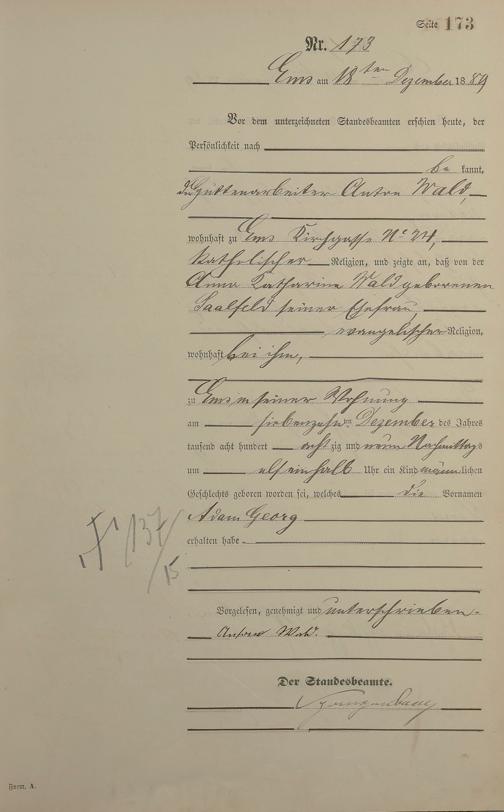 Seite 173
Nr. 173
Ems am 18ten Dezember 1889
Vor dem unterzeichneten Standesbeamten erschien heute, der
Persönlichkeit nach
be kannt,
der Hüttenarbeiter Anton Wald,
wohnhaft zu Ems Kirchgasse No 24,
katholischer Religion, und zeigte an, daß von der
Anna Katharine Wald geborenen
Saalfeld seiner Ehefrau,
evangelischer Religion,
wohnhaft bei ihm,
zu Ems in seiner Wohnung
am siebenzehnten Dezember des Jahres
tausend acht hundert acht zig und neun Nachmittags
um elf einhalb Uhr ein Kind männlichen
Geschlechts geboren worden sei, welches die Vornamen
Adam Georg
erhalten habe.
137/15
Vorgelesen, genehmigt und unterschrieben.
Anton Wald.
Der Standesbeamte.
Form. A.